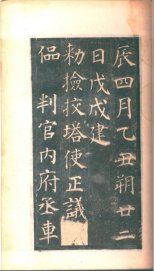 辰四月乙丑朔廿二
日戊戌建
勑撿挍塔使正議
偘 判官內府丞車